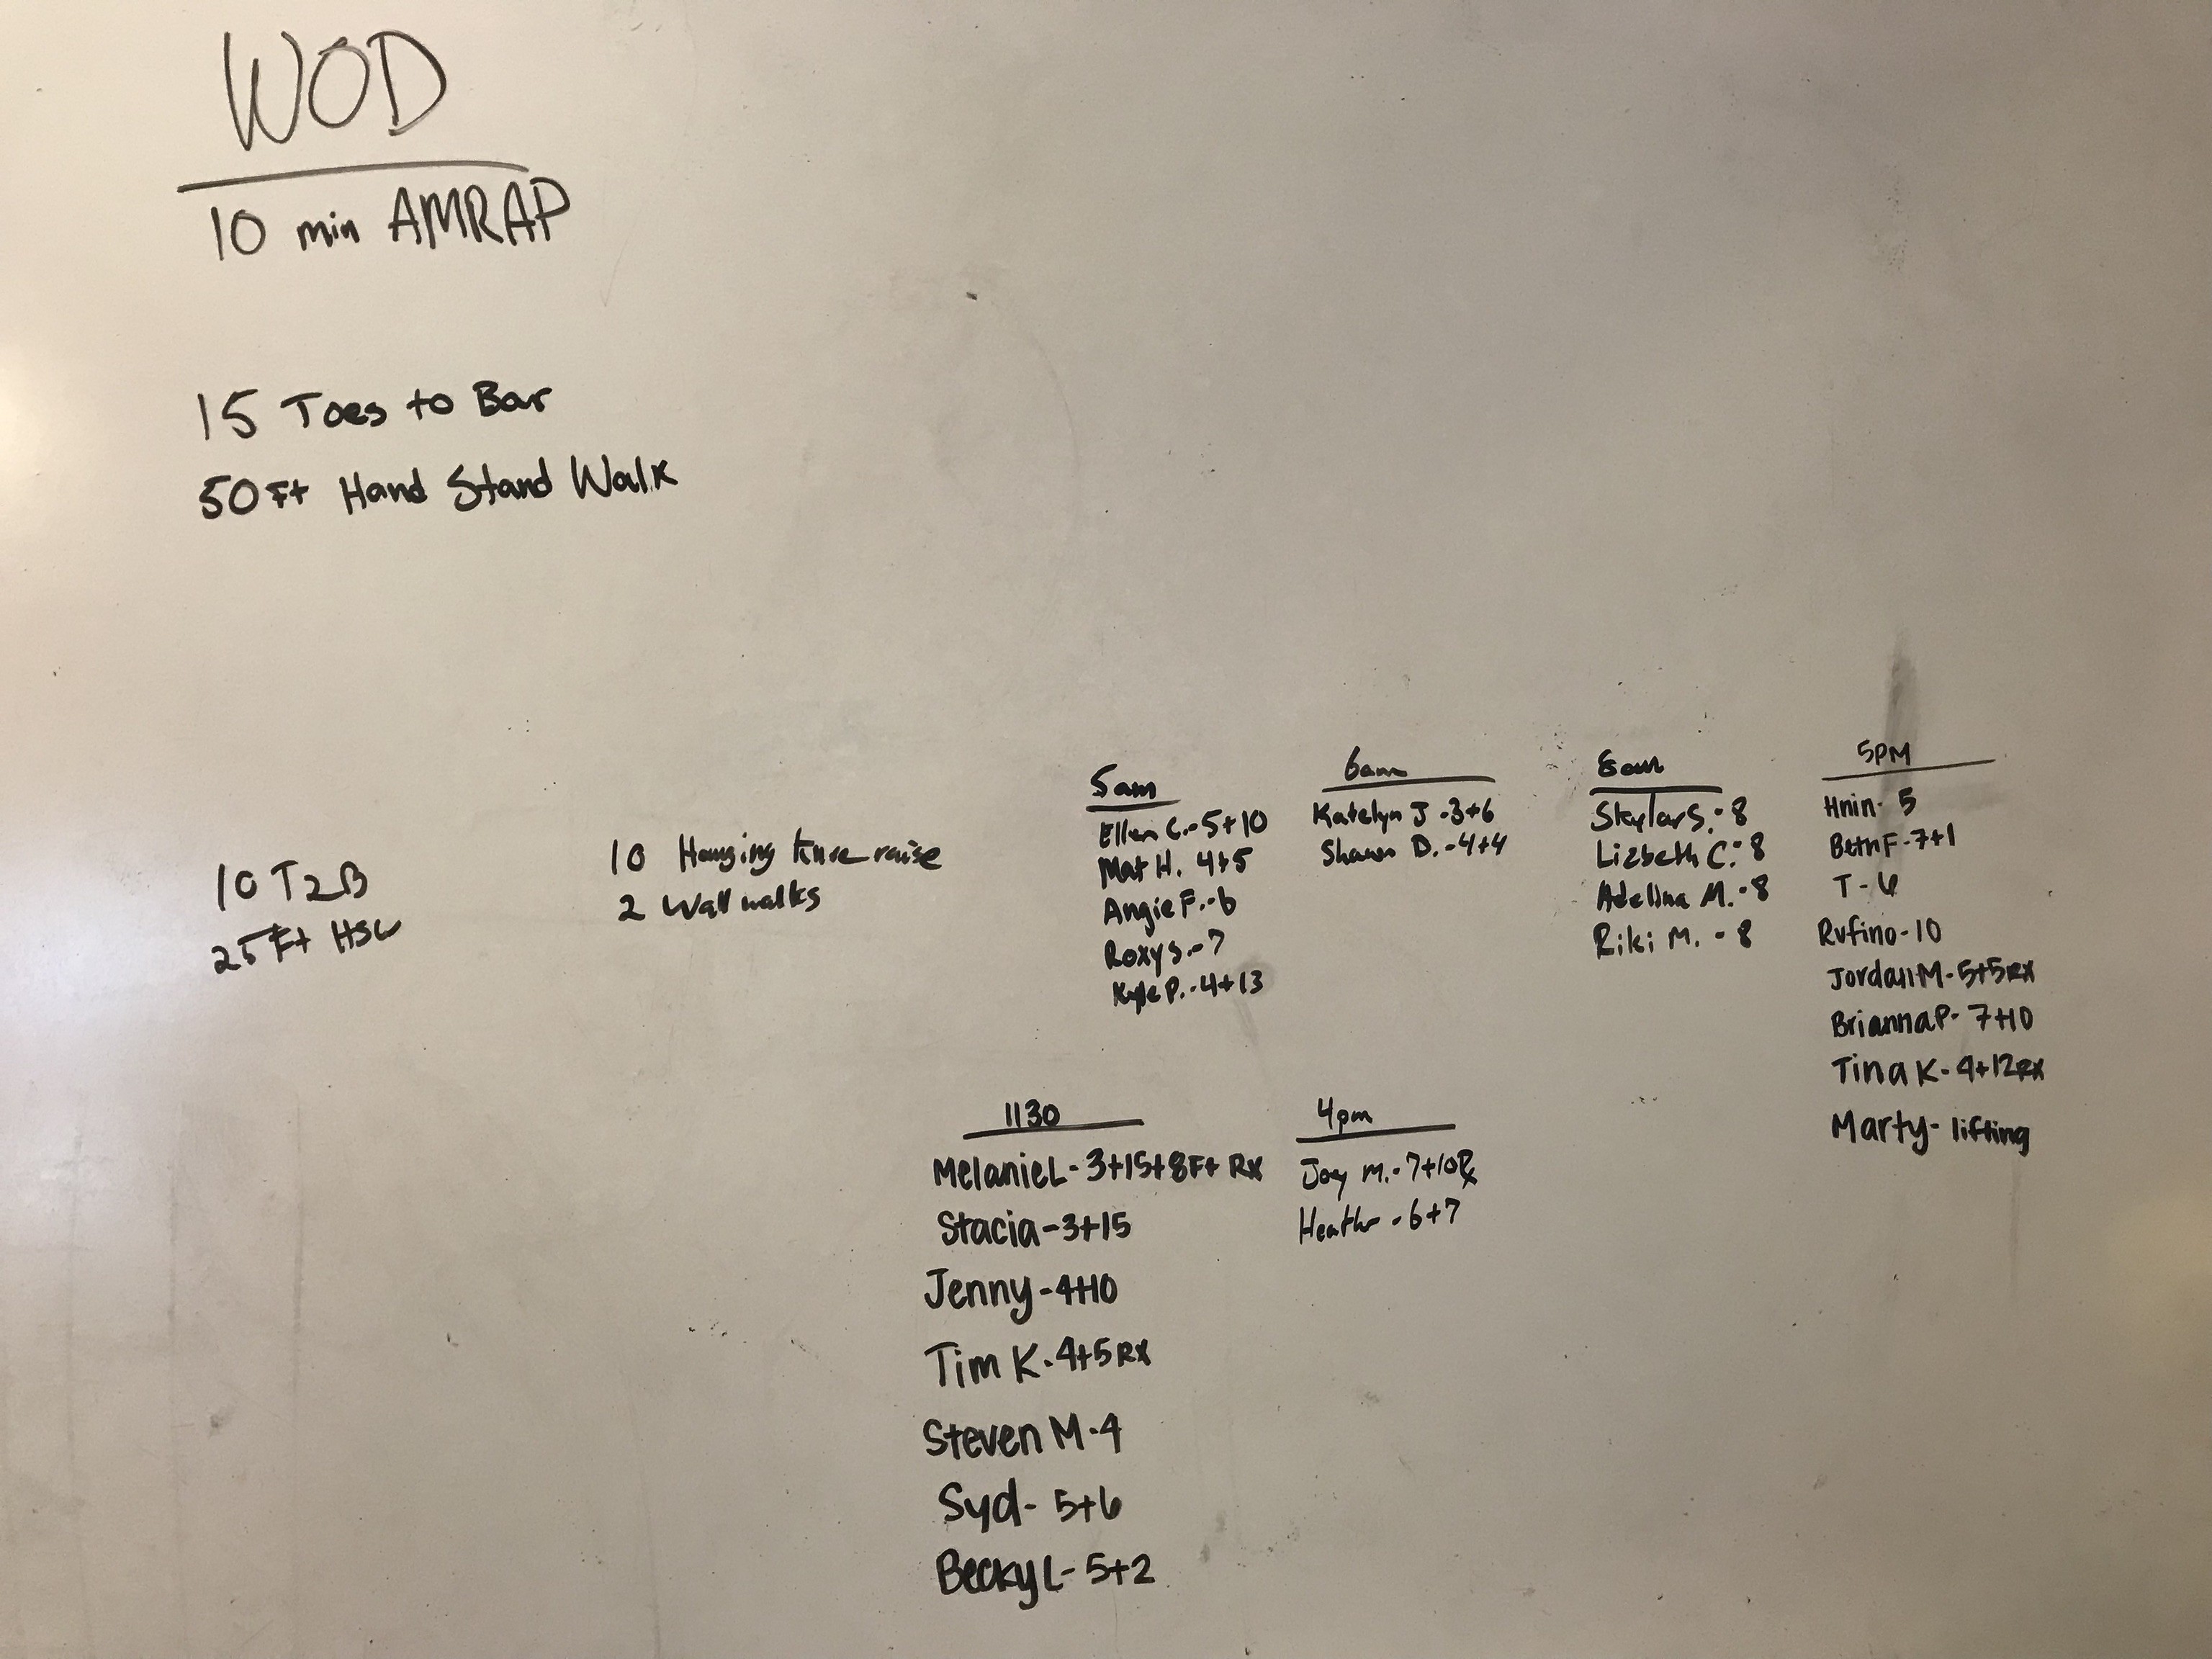 WOD
10 min AMRAP
15 Toes to Bar
50 Ft Hand Stand Walk
10 T2B
25 Ft HSW
10 Hanging knee raise
2 Wall walks
5am
Ellen C.-5+10
Mat H. 4+5
Angie F.-6
Roxy S.-7
Kyle P.-4+13
6am
Katelyn J -3+6
Shawn D.-4+4
8am
Skylar S.-8
Lizbeth C.-8
Adelina M.-8
Riki M. -8
5PM
Hnin- 5
Beth F-7+1
T-6
Rufino-10
Jordan M-5+5 RX
Brianna P- 7+10
Tina K-4+12 RX
Marty- lifting
1130
Melanie L-3+15+8Ft RX
Stacia-3+15
Jenny-4+10
Tim K-4+5 RX
Steven M-4
Syd- 5+6
Becky L-5+2
4pm
M.-7+10 Rx
Heather -6+7